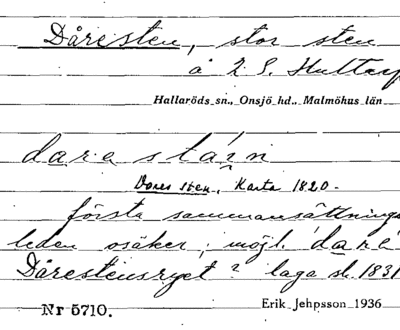 Dåresten, stor sten
å 2 S. Hultarp
Hallaröds sn., Onsjö hd., Malmöhus län
dara stáin
Dores sten, Karta 1820.
första sammansättnings
leden osäker; möjl. dare
Dårestensryet? laga sk. 1831
Nr 5710.
Erik Jehpsson 1936